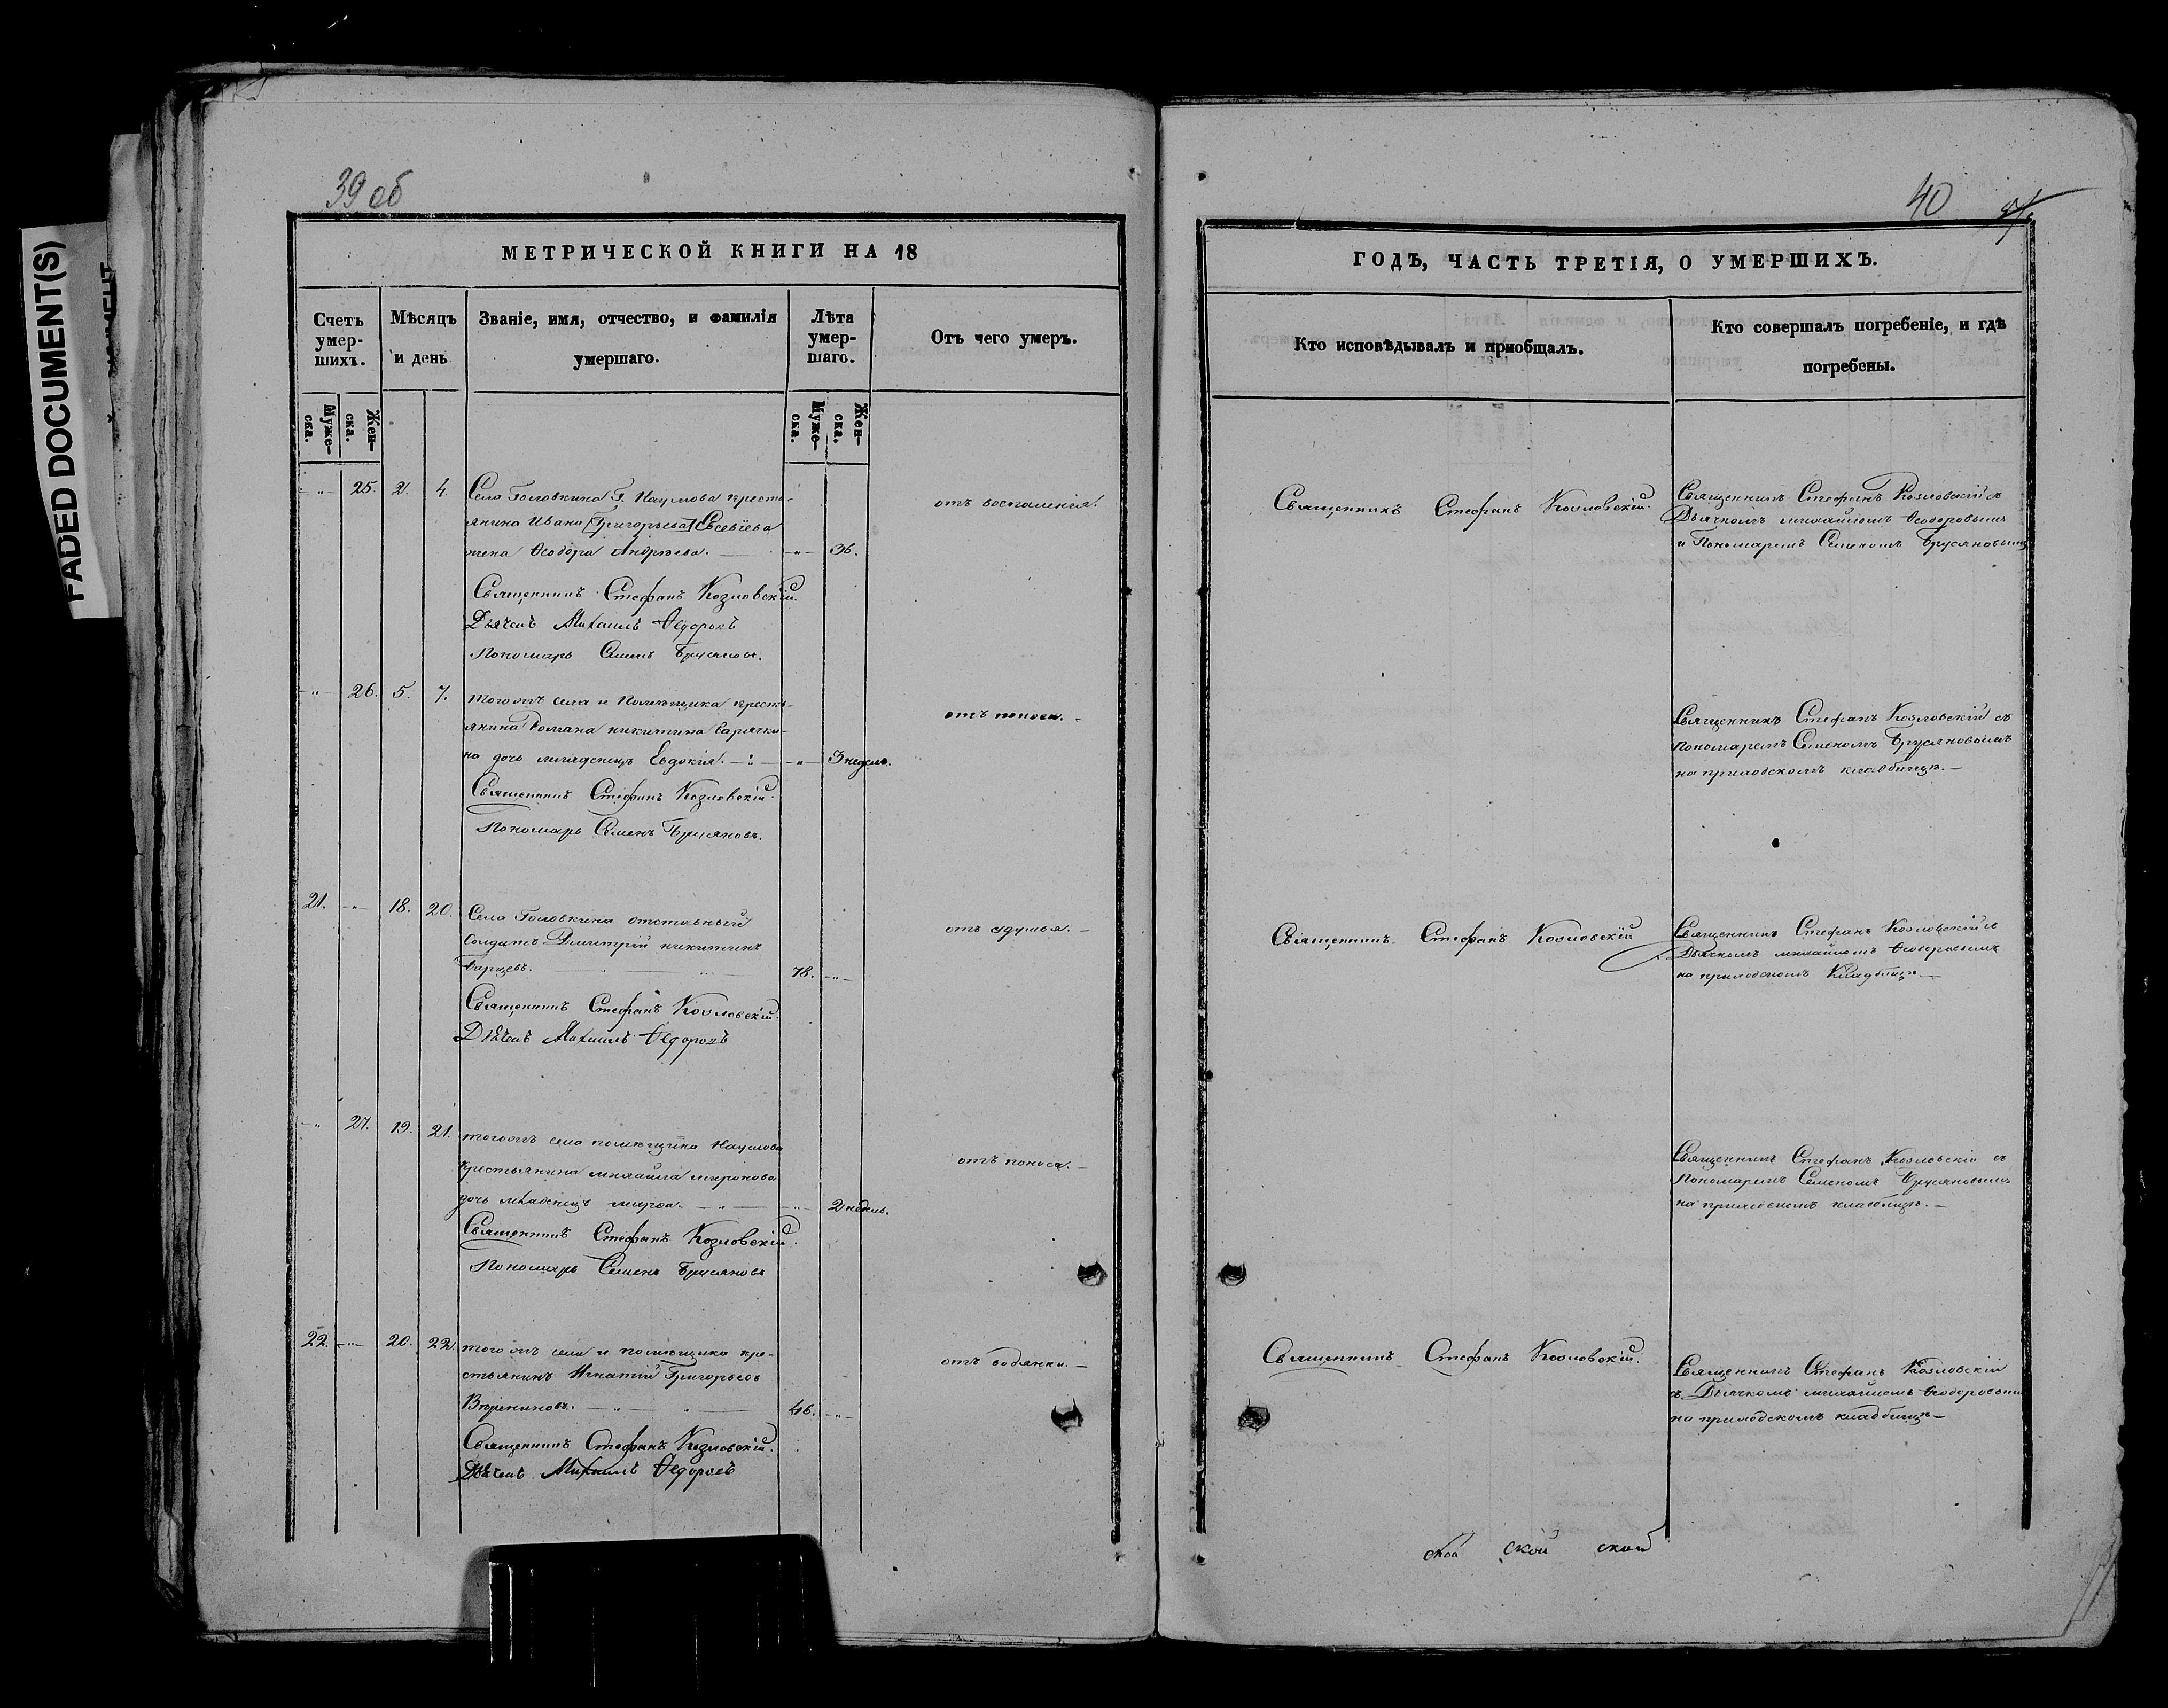 FADED DOCUMENT(S)
39 об
МЕТРИЧЕСКОЙ КНИГИ НА 18
Счетъ умер-шихъ.
Мѣсяцъ и день
Званіе, имя, отчество, и фамилія
умершаго.
Лѣта умер-шаго.
Отъ чего умеръ.
Муже-ска.
Жен-ска.
Муже-ска.
Жен-ска.
25. 2. 4. Села Головкина Г. Наумова кресть-
янина Ивана Григорьева Евсевіева
жена Ѳеодора Андреева. 36.
отъ воспаленія.
Священникъ Стефанъ Козловскій.
Дьячекъ Михаилъ Ѳедоровъ
Пономарь Семенъ Брусяновъ.
26. 5. 7. тогожъ села и Помѣщика кресть-
янина Романа никитина
на дочь младенецъ Евдокія. 3 недель.
отъ поноса.
Священникъ Стефанъ Козловскій.
Пономарь Семенъ Брусяновъ.
21. 18. 20. Села Головкина отставный
солдатъ Димитрій никитинъ
78.
отъ удушья.
Священникъ Стефанъ Козловскій.
Дьячекъ Михаилъ Ѳедоровъ
27. 19. 21. тогожъ села помещика Наумова
крестьянина михаила миронова
дочь младенецъ 2 недель.
отъ поноса.
Священникъ Стефанъ Козловскій.
Пономарь Семенъ Брусяновъ
22. 20. 22. тогожъ села и помещика кре-
стьянинъ Игнатій Григорьевъ
46.
отъ водянки.
Священникъ Стефанъ Козловскій.
Дьячекъ Михаилъ Ѳедоровъ
40
ГОДЪ, ЧАСТЬ ТРЕТІЯ, О УМЕРШИХЪ.
Кто исповѣдывалъ и приобщалъ.
Кто совершалъ погребеніе, и гдѣ
погребены.
Священникъ Стефанъ Козловскій.
Священникъ Стефанъ Козловскій съ
Дьячкомъ михайломъ Ѳеодоровымъ
и Пономаремъ Семеномъ Брусяновымъ
Священникъ Стефанъ Козловскій съ
пономаремъ Семеномъ Брусяновымъ
на приходскомъ кладбищѣ.
Священникъ Стефанъ Козловскій
Священникъ Стефанъ Козловскій съ
Дьячкомъ михайломъ Ѳеодоровымъ
на приходскомъ Кладбищѣ
Священникъ Стефанъ Козловскій съ
Пономаремъ Семеномъ Брусяновымъ
на приходскомъ кладбищѣ.
Священникъ Стефанъ Козловскій.
Священникъ Стефанъ Козловскій
съ Дьячкомъ михайломъ Ѳеодоровымъ
на приходскомъ кладбищѣ
ской ской ской